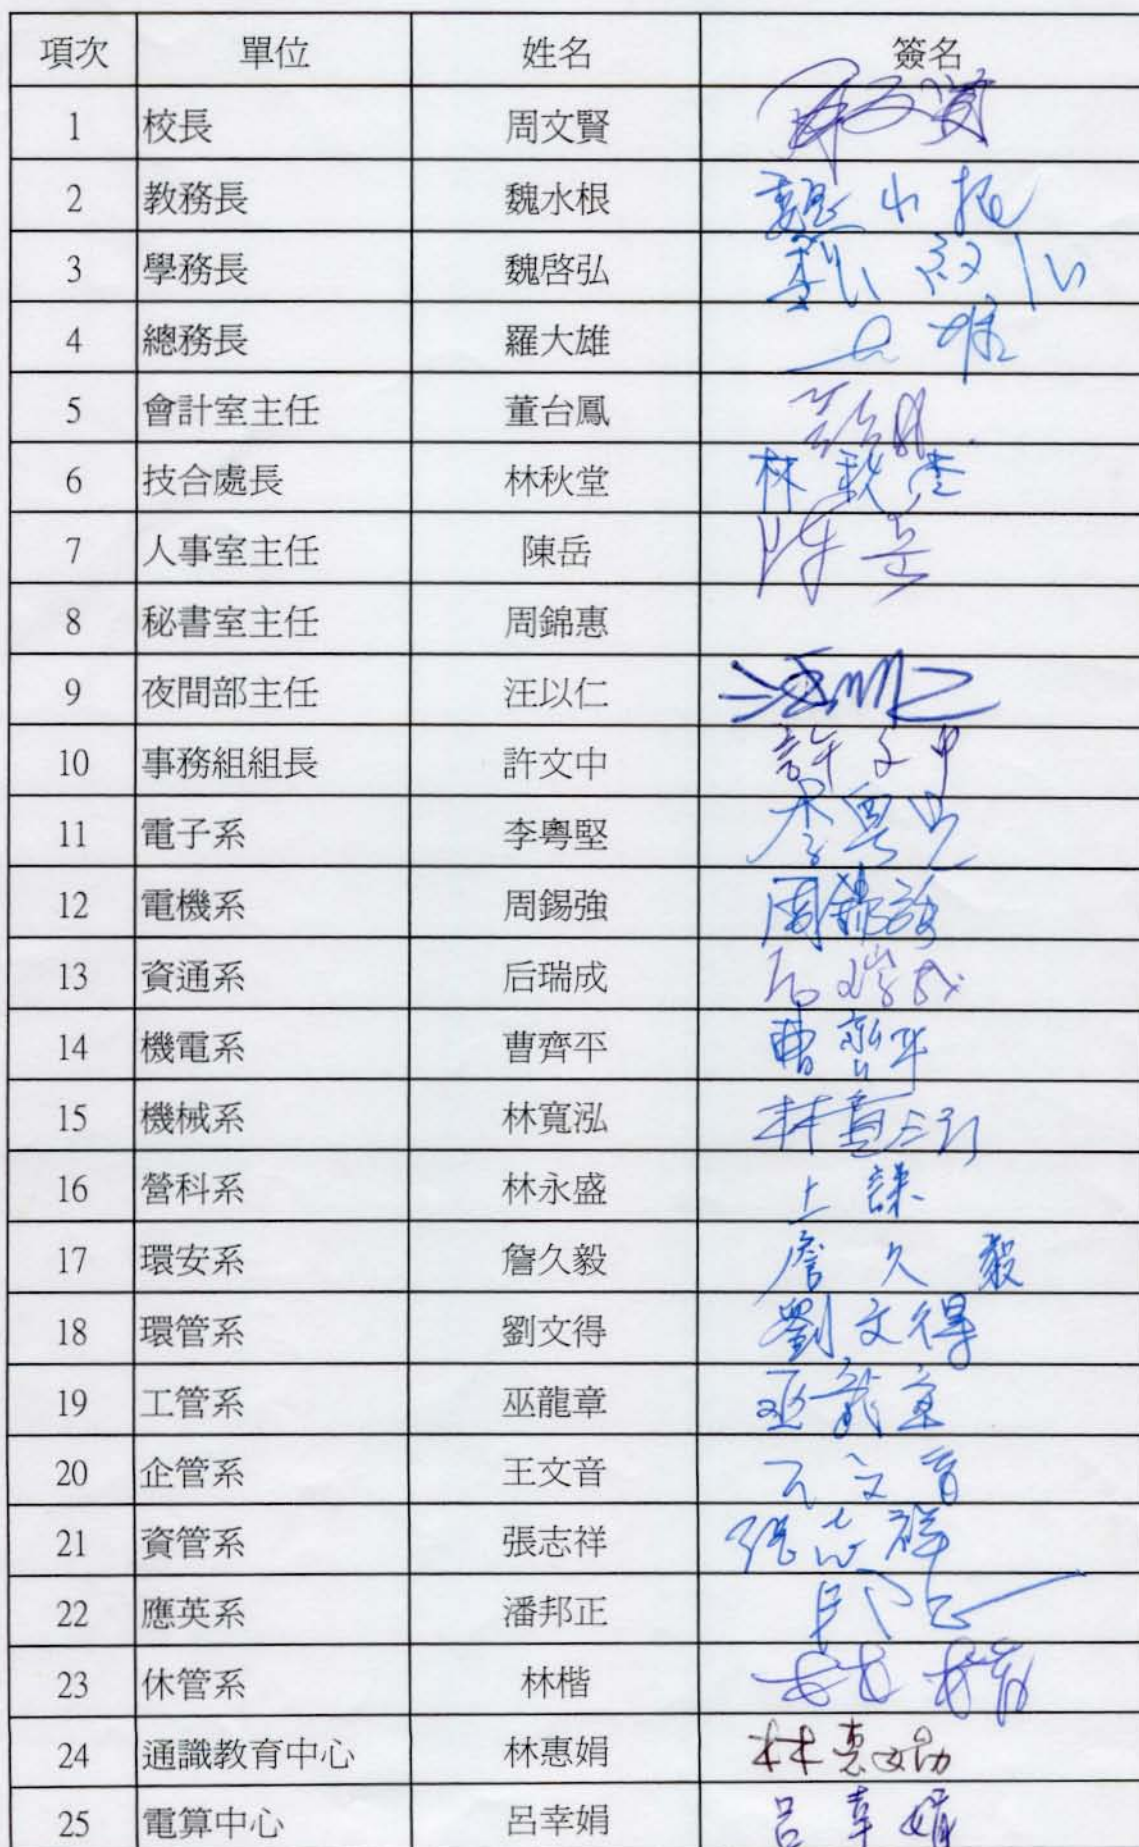 項次 單位 姓名 簽名
1 校長 周文賢
2 教務長 魏水根 魏水根
3 學務長 魏啓弘
4 總務長 羅大雄 大雄
5 會計室主任 董台鳳
6 技合處長 林秋堂 林秋堂
7 人事室主任 陳岳 陳岳
8 秘書室主任 周錦惠
9 夜間部主任 汪以仁
10 事務組組長 許文中 許文中
11 電子系 李粵堅 李粵堅
12 電機系 周錫強 周錫強
13 資通系 后瑞成 后瑞成
14 機電系 曹齊平 曹齊平
15 機械系 林寬泓 林寬泓
16 營科系 林永盛 上課
17 環安系 詹久毅 詹久毅
18 環管系 劉文得 劉文得
19 工管系 巫龍章 巫龍章
20 企管系 王文音 王文音
21 資管系 張志祥 張志祥
22 應英系 潘邦正
23 休管系 林楷
24 通識教育中心 林惠娟 林惠娟
25 電算中心 呂幸娟 呂幸娟